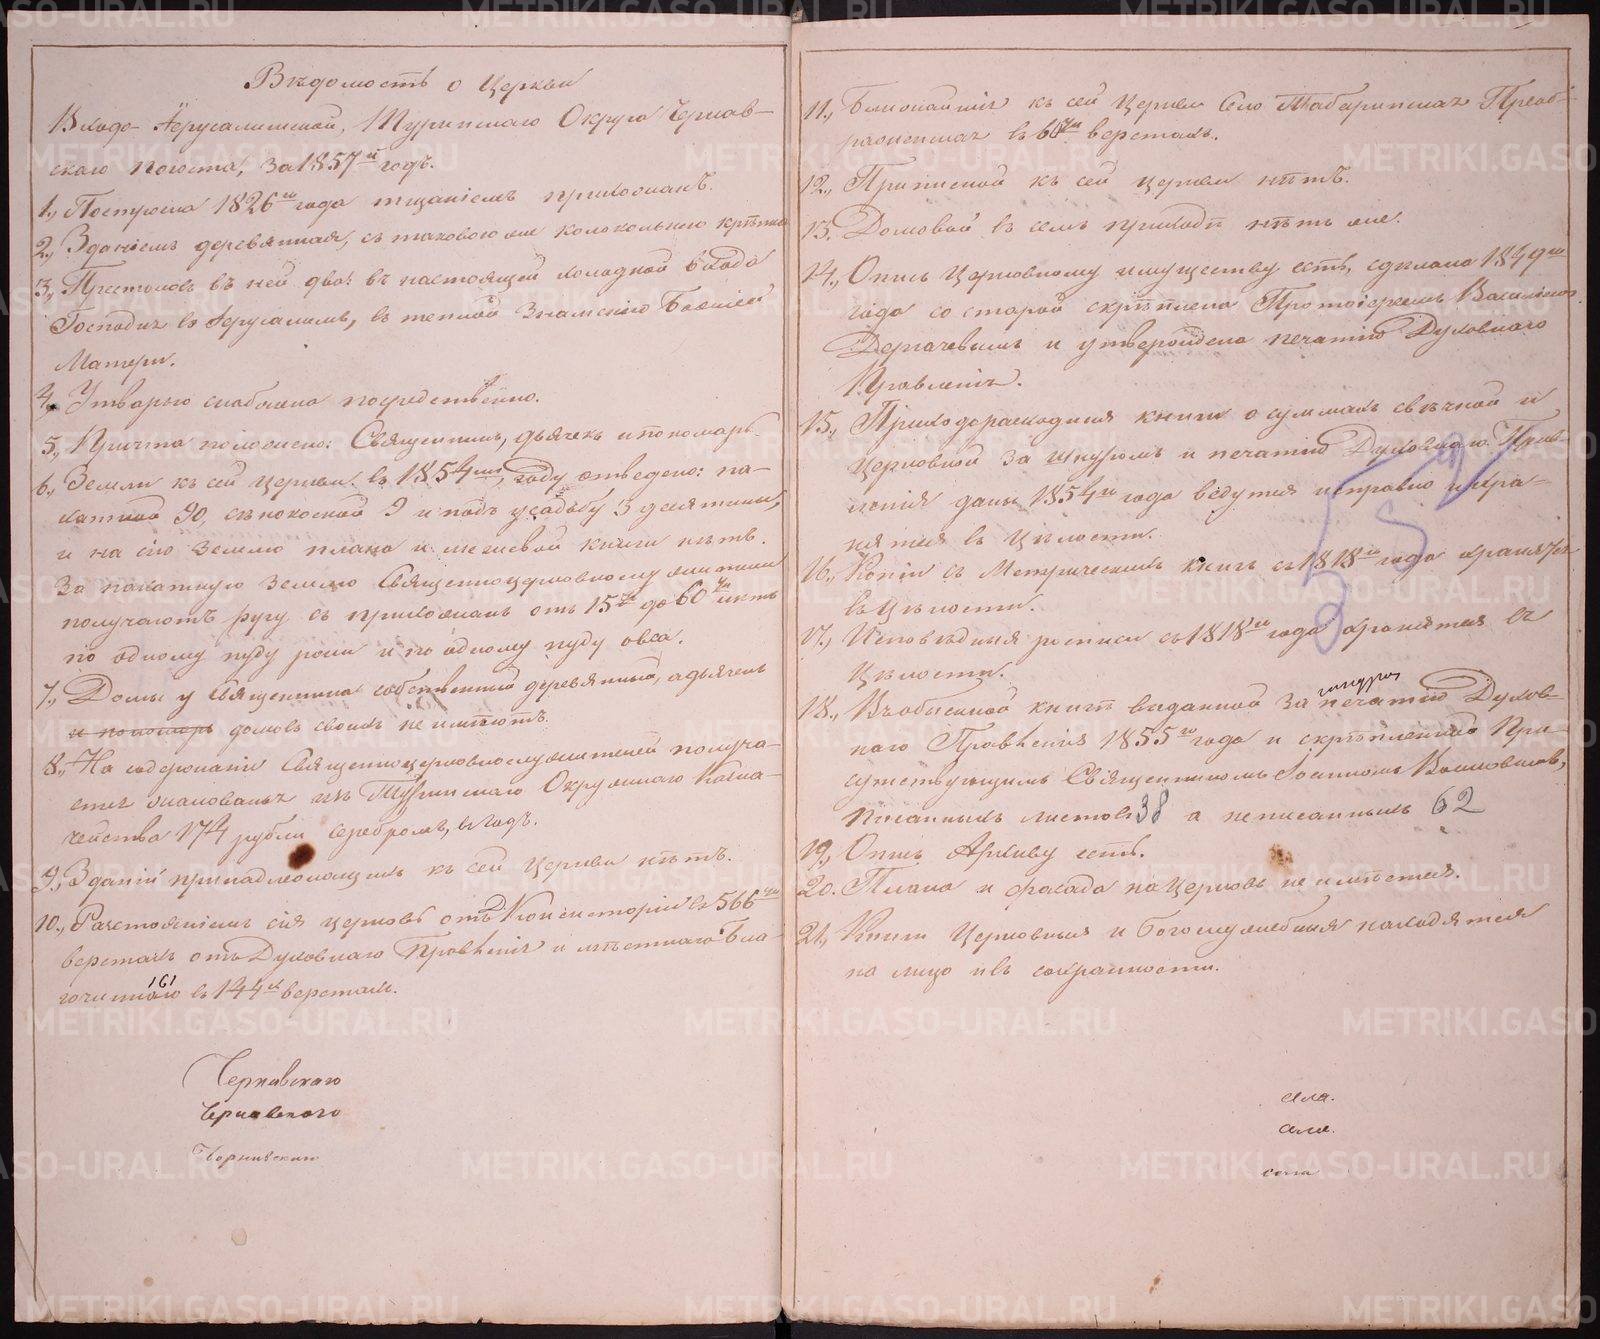 Вѣдомость о Церкви
Входо-Іерусалимской, Туринскаго Округа Чернав-
скаго погоста, за 1857й годъ.
1., Построена 1826го года тщаніемъ прихожанъ.
2., Зданіемъ деревянная, съ таковою же колокольнею крѣпка
3., Престоловъ въ ней два: въ настоящей холодной Входа
Господня въ Іерусалимъ, въ теплой Знаменію Божіей
Матери.
4., Утварью снабжена посредственно.
5., Причта положено: Священникъ, дьячекъ и пономарь.
6., Земли къ сей церкви въ 1854мъ, году отведено: па-
хатной 90, сѣнокосной 9 и подъ усадьбу 3 десятины,
и на сію землю плана и межевой книги нѣтъ.
За пахатную землю Священноцерковнослужители
получаютъ ругу съ прихожанъ отъ 15ти до 60ти лѣтъ
по одному пуду ржи и по одному пуду овса.
7., Домъ у священника собственный деревянный, а дьячекъ
и пономарь домовъ своихъ не имѣютъ.
8., На содержаніе Священноцерковнослужителей получа-
ется жалованья изъ Туринскаго Окружнаго Казна-
чейства 174 рубли серебромъ, въ годъ.
9., Зданій принадлежащихъ къ сей Церкви нѣтъ.
10., Разстояніемъ сія церковь отъ Консисторіи въ 566ти
верстахъ отъ Духовнаго Правленія и мѣстнаго Бла-
161
гочиннаго въ 144хъ верстахъ.
Чернавскаго
Чернавского
Чернавскаго
11., Ближайшія къ сей Церкви Село Табаринская Преоб-
раженская въ 60ти верстахъ.
12., Приписной къ сей церкви нѣтъ.
13. Домовой въ семъ приходѣ нѣтъ же.
14., Опись Церковному имуществу есть, сдѣлана 1849го
года со старой скрѣплена Протоіереемъ Василіемъ
Дергачевымъ и утверждена печатію Духовнаго
Правленія.
15., Приходорасходныя книги о суммахъ свѣчной и
церковной за шнуромъ и печатію Духовнаго Прав-
ленія даны 1854го года ведутся исправно и хра-
нятся въ цѣлости.
16., Копіи съ Метрическихъ книгъ съ 1818го года хранятся
въ цѣлости.
17., Исповѣдныя росписи съ 1818го года хранятся въ
цѣлости.
шнуром
18., Въ обыскной книгѣ выданной за печатію Духов-
наго Правленія 1855го года и скрѣпленной При-
сутствующимъ Священникомъ Іоанномъ
писанныхъ листовъ 38 а неписанныхъ 62
19., Опись Архиву есть.
20. Плана и фасада на Церковь не имѣется.
21., Книги Церковныя и богослужебныя находятся
на лицо и въ сохранности.
села.
села.
села
METRIKI.GASO-URAL.RU